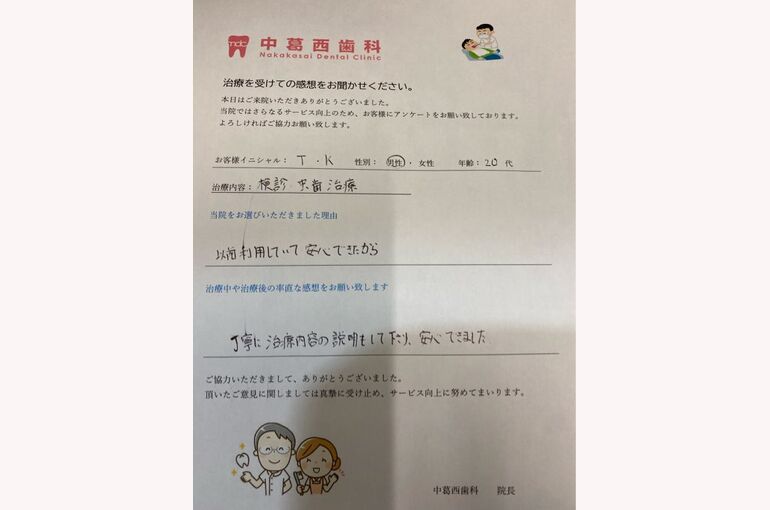 ndc
中葛西歯科
Nakakasai Dental Clinic
治療を受けての感想をお聞かせください。
本日はご来院いただきありがとうございました。
当院ではさらなるサービス向上のため、お客様にアンケートをお願い致しております。
よろしければご協力お願い致します。
お客様イニシャル: T・K 性別: 男性・女性 年齢: 20 代
治療内容: 検診・虫歯治療
当院をお選びいただきました理由
以前利用していて安心できたから
治療中や治療後の率直な感想をお願い致します
丁寧に治療内容の説明もして下さり、安心できました
ご協力いただきまして、ありがとうございました。
頂いたご意見に関しましては真摯に受け止め、サービス向上に努めてまいります。
中葛西歯科 院長